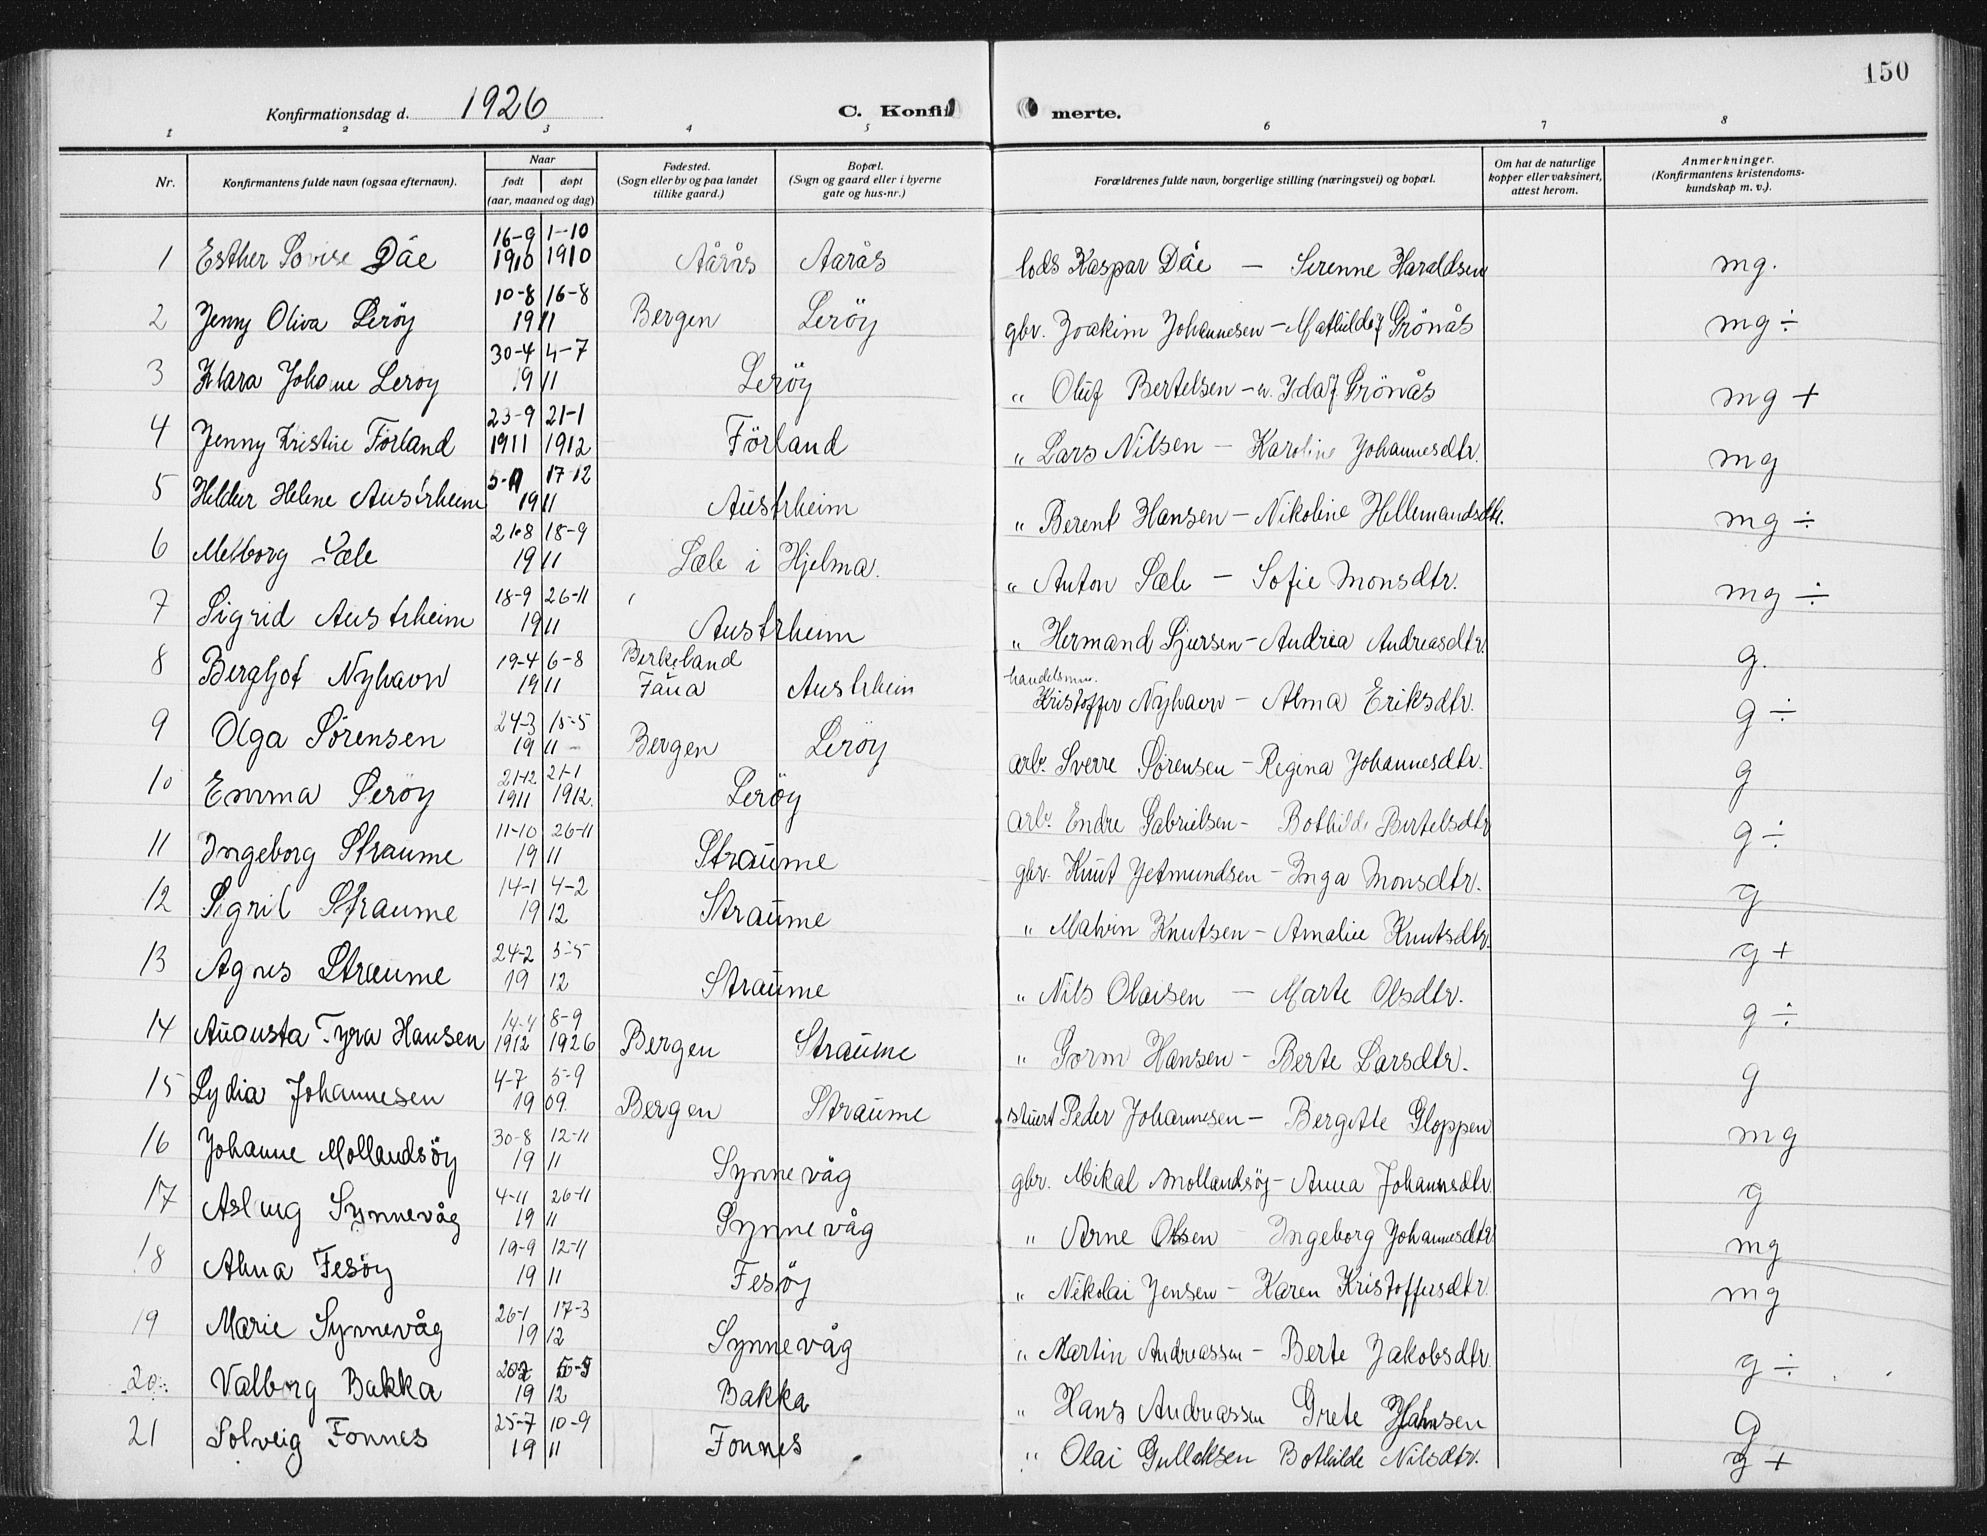 150
Konfirmationsdag d. 1926 C. Konfir merte.
1 2 3 4 5 6 7 8
Nr. Konfirmantens fulde navn (ogsaa efternavn). Naar født døpt (aar, maaned og dag) Fødested. (Sogn eller by og paa landet tillike gaard.) Bopæl. (Sogn og gaard eller i byerne gate og hus-nr.) Forældrenes fulde navn, borgerlige stilling (næringsvei) og bopæl. Om hat de naturlige kopper eller vaksinert, attest herom. Anmerkninger. (Konfirmantens kristendoms-kundskap m. v.).
1 Esther Lovise Dåe 16-9 1910 1-10 1910 Aårås Aarås lods Kaspar Dåe — Serenne Haraldsen mg.
2 Jenny Oliva Leröy 10-8 16-8 1911 Bergen Leröy gbr. Joakim Johannesen - Mathilde f Grönås mg ÷
3 Klara Johane Leroy 30-4 4-7 1911 Leröy " Oluf Bertelsen - Ida f. Grönås mg +
4 Jenny Kristine Förland 23-9 1911 21-1 1912 Förland " Lars Nilsen - Karoline Johannesdtr. mg
5 Helene Austrheim 17-12 1911 Austrheim " Berent Hansen - Nikoline Hellemandsdtr. mg ÷
6 Sæle 21-8 18-9 1911 Sæle i Hjelma. " Anton Sæle - Sofie Monsdtr. mg ÷
7 Sigrid Austrheim 18-9 26-11 1911 Austrheim " Hermand - Andrea Andreasdtr. g.
8 Bergljot Nyhavn 19-4 6-8 1911 Birkeland Fana Austrheim handelsmn. Kristoffer Nyhavn - Alma Eriksdtr. g ÷
9 Olga Sørensen 24-3 15-5 1911 Bergen Leröy arb. Sverre Sørensen - Regina Johannesdtr. g
10 Emma Leröy 21-12 1911 21-1 1912. Leröy arb. Endre Gabrielsen - Bothilde Bertelsdtr g ÷
11 Ingeborg Straume 11-10 26-11 1911 Straume gbr. Knut Jetmundsen - Inga Monsdtr. g
12 Straume 14-1 4-2 1912 Straume " Malvin Knutsen - Amalie Knutsdtr. g +
13 Agnes Straume 24-2 5-5 1912 Straume " Nils Olaisen — Marte Olsdtr. g ÷
14 Augusta Tyra Hansen 1912 8-9 1926 Bergen Straume " Gorm Hansen - Berte Larsdtr. g
15 Lydia Johannesen 4-7 5-9 1909. Bergen Straume stuert Peder Johannesen - Bergitte Gloppen mg
16 Johanne Mollandsöy 30-8 12-11 1911 Synnevåg gbr. Mikal Mollandsöy - Anna Johannsdtr. g
17 Aslaug Synnevåg 4-11 26-11 1911 Synnevåg " Arne Olsen - Ingeborg Johannesdtr mg
18 Alma Fesöy 19-9 12-11 1911 Fesöy " Nikolai Jensen - Karen Kristoffersdtr. mg
19 Marie Synnevåg 26-1 17-3 1912 Synnevåg " Martin Andreassen - Berte Jakobsdtr. g ÷
20 Valborg Bakka 1912 Bakka " Hans Andreassen Grete g
21 Solveig Fonnes 25-7 10-9 1911 Fonnes " Olai Gullaksen Bothilde Nilsdtr. g +